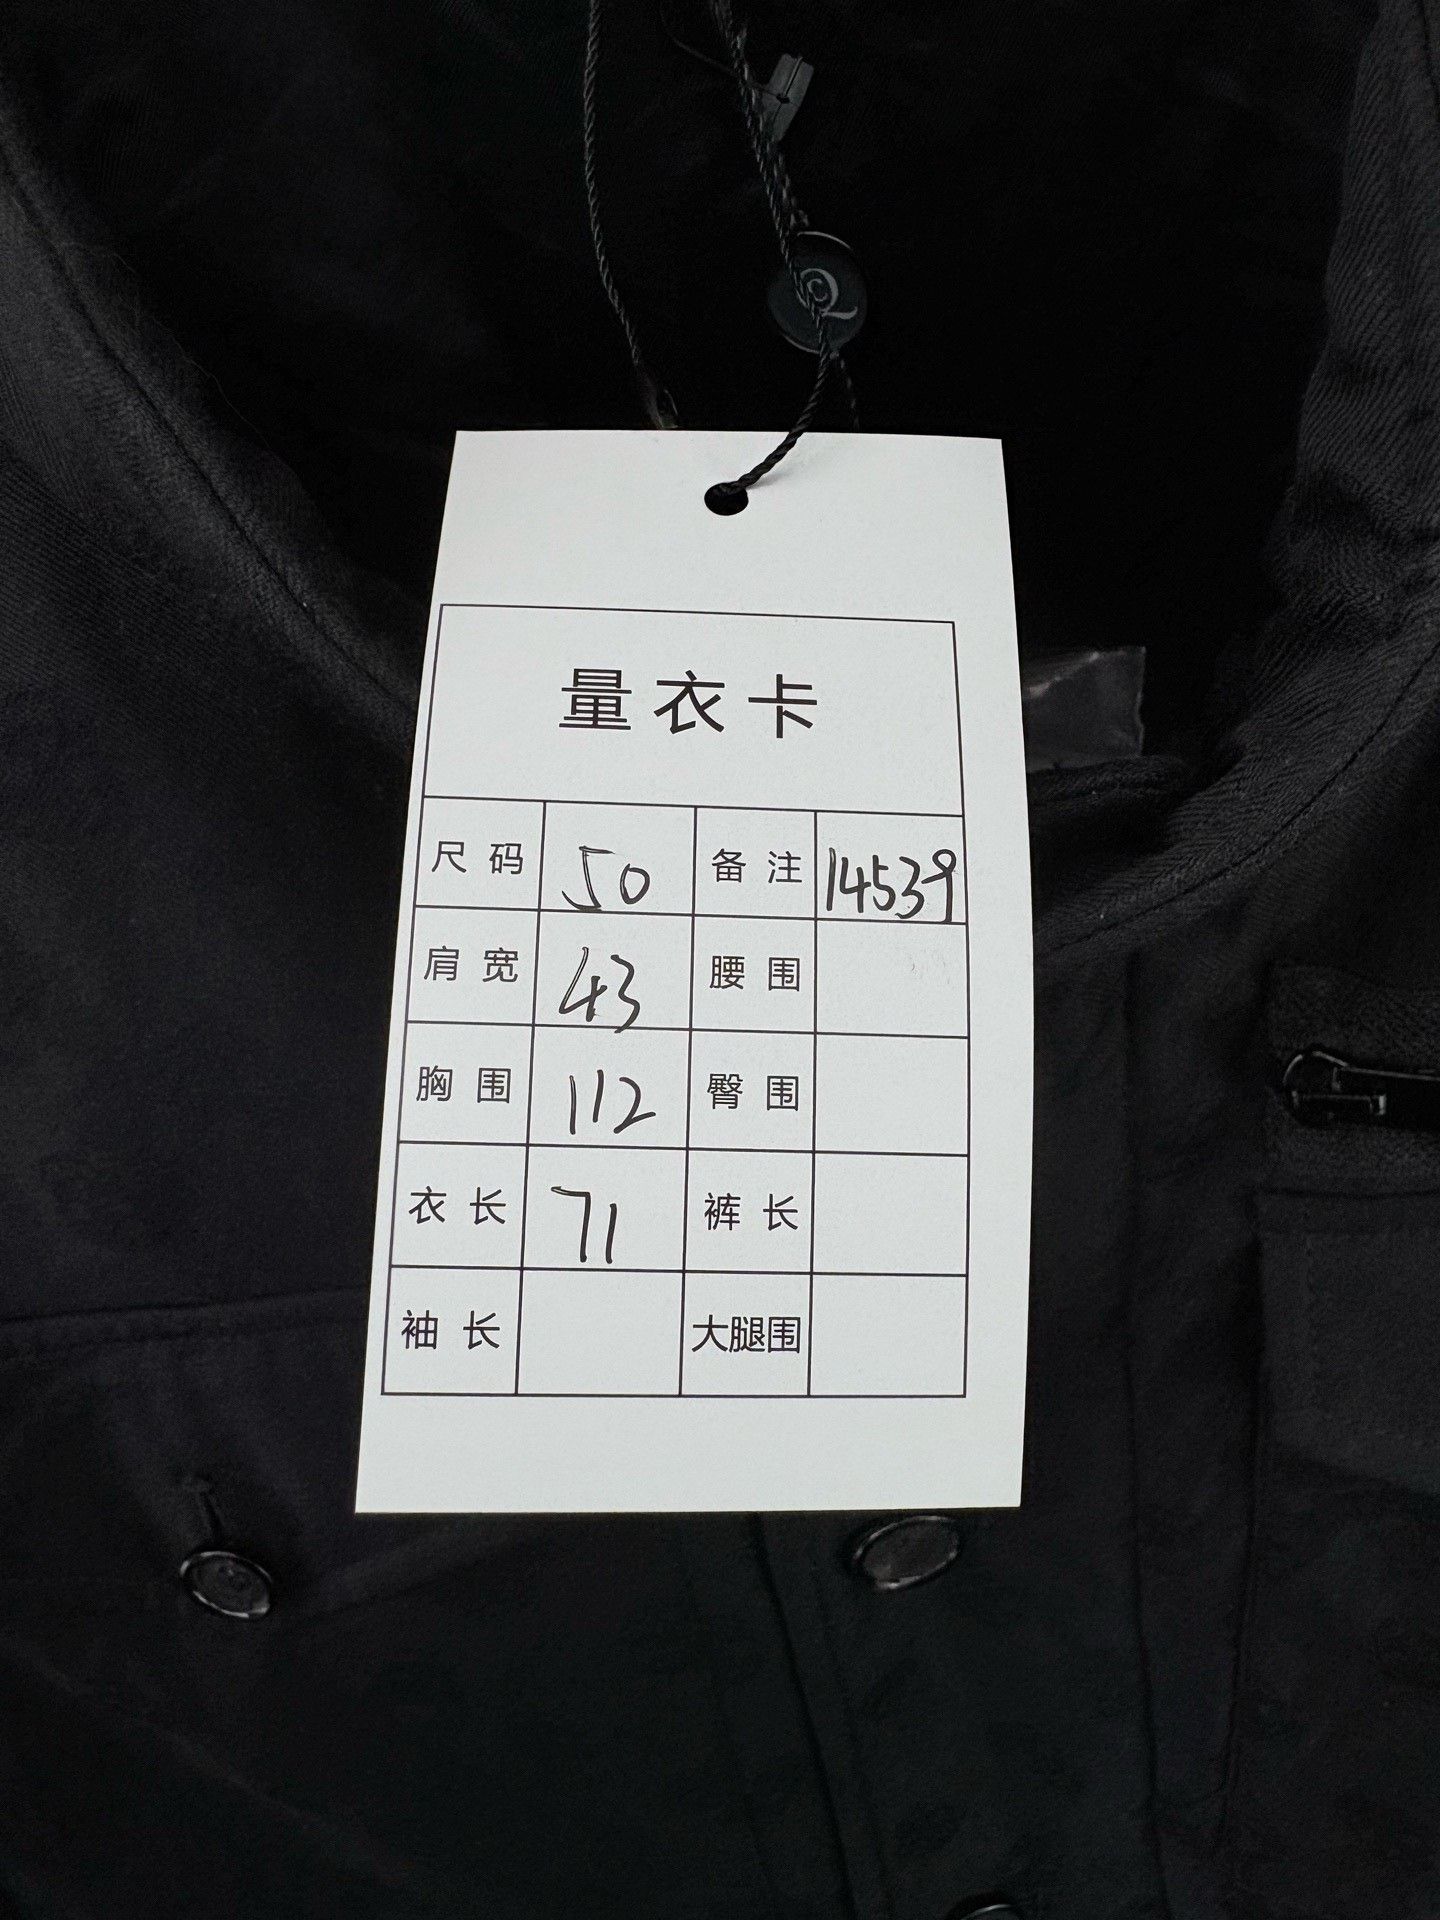 Q
量衣卡
尺码 50 备注 14539
肩宽 43 腰围
胸围 112 臀围
衣长 71 裤长
袖长 大腿围